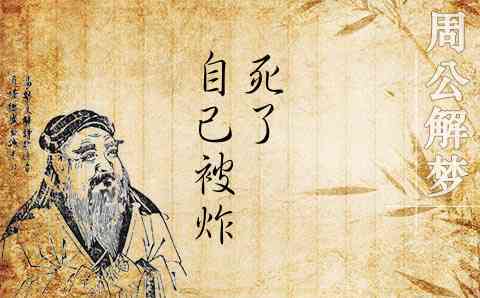 周公解梦
死了
自己被炸